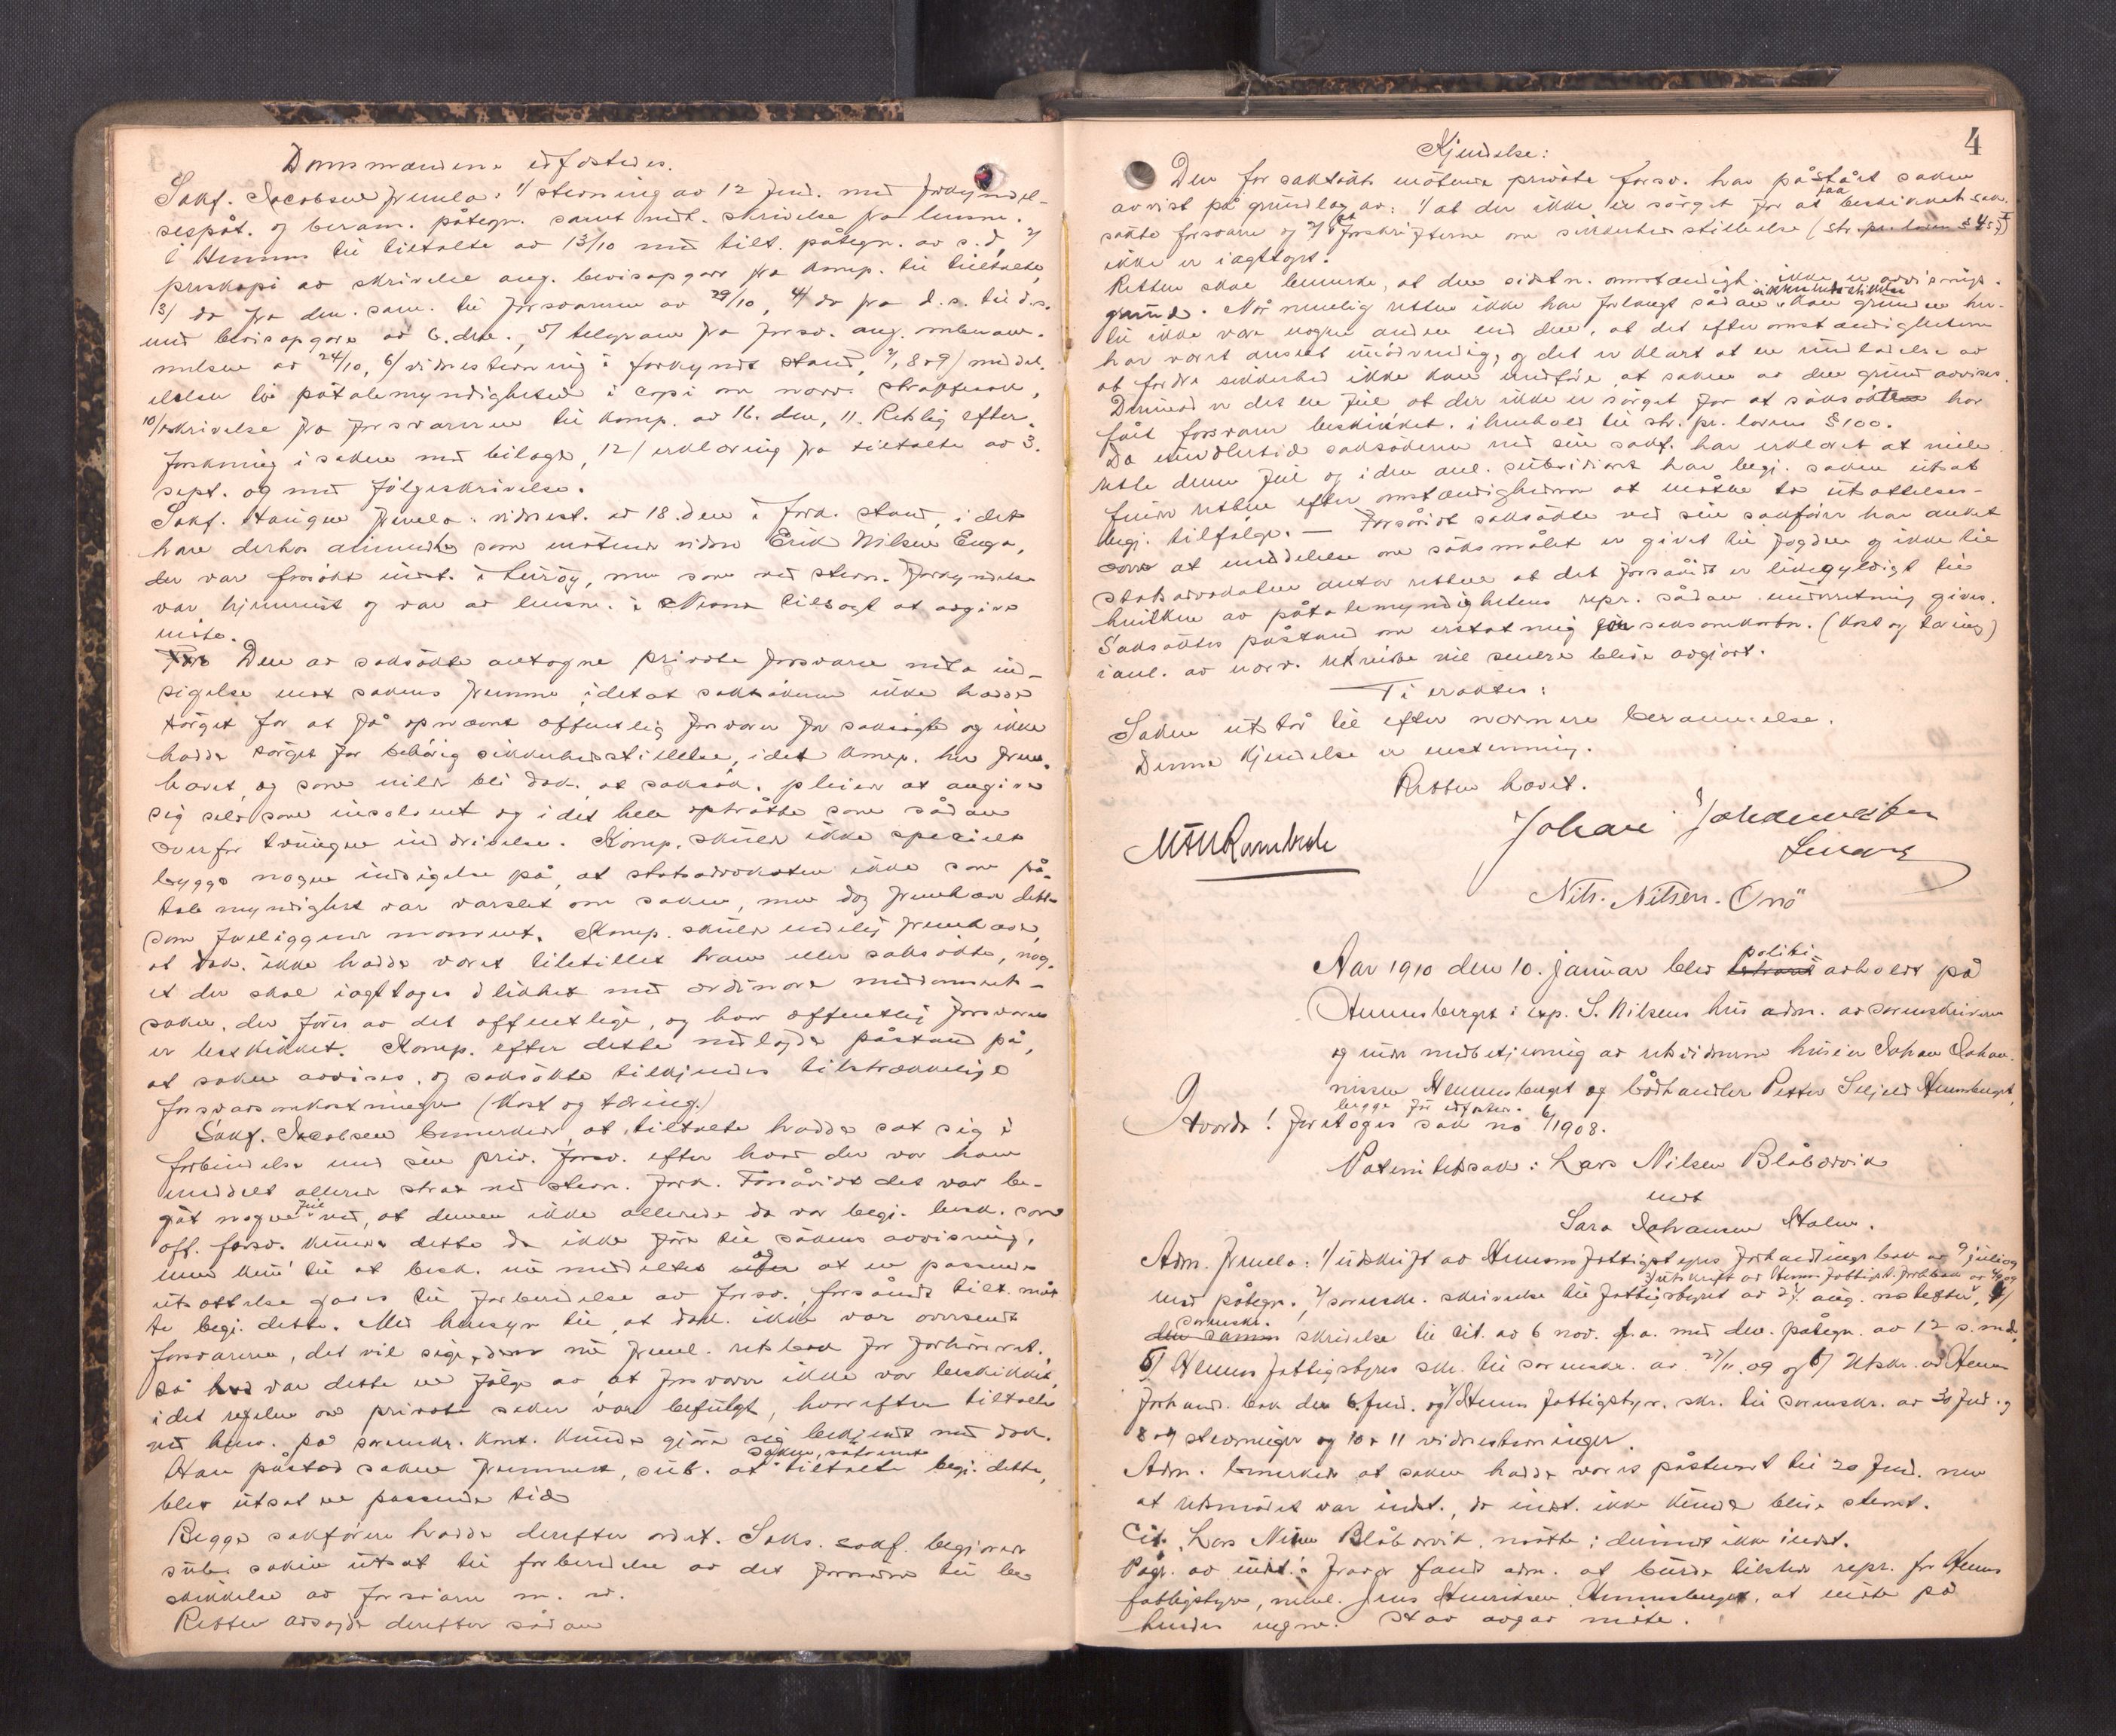 Domsmændene edfæstedes.
Sakf. Jacobsen freml.: 1/ stevning av 12 f.md. med forkyndel-
sespåt. og beram. påtegn. samt medt. skrivelse fra lensm.
i Hemnes til tiltalte av 13/10 med tilt. påtegn. av s.d., 2/
preskopi av skrivelse ang. bevisopgave fra komp. til tiltalte,
3/ do fra den sam. til forsvareren av 29/10, 4/ do fra d.s. til d.s.
med bevisopgave av 6. dse., 5/ telegram fra forsv. ang. omberam-
melsen av 24/10, 6/ vidnestevning i forkyndt stand, 7, 8 og 9/ meddel-
elsen til påtalemyndigheten i copi om nærv. straffesak,
10/ skrivelse fra forsvareren til komp. av 16. dsn, 11. Retslig efter-
forskning i saken med bilage, 12/ erklæring fra tiltalte av 3.
sept. og med følgeskrivelse.
Sakf. Haugen freml. vidnest. av 18. dsn i fork. stand, i det
han derhos anmeldte som møtende vidne Erik Nilsen Enga,
der var forsøkt indst. i Lurøy, men som ved stevn. forkyndelse
var hjemreist og var av lensm. i Nesna tilsagt at avgive
møte.
Den av saksøkte antagne private forsvarer nedla ind-
sigelse mot sakens fremme, idet at saksøkeren ikke hadde
sørget for at få opnævnt offentlig forsvarer for saksøgte og ikke
hadde sørget for behørig sikkerhedsstillelse, idet komp. her frem-
hævet, og som vilde bli dok. at saksøk. pleier at angive
sig selv som insolvent og i det hele optrådte som sådan
overfor tvungen inddrivelse. Komp. skulde ikke specielt
bygge nogen indsigelse på, at statsadvokaten ikke som på-
talemyndighet var varslet om saken, men dog fremhæve dette
som foreliggende moment. Komp. skulde endelig fremhæve,
at dok. ikke hadde været tilstillet ham eller saksøkte, nog-
et der skal iagttages i likhet med ordinære meddomsrets-
saker, der føres av det offentlige, og hvor offentlig forsvarer
er beskikket. Komp. efter dette nedlagde påstand på,
at saken avvises, og saksøkte tilkjendes tilstrækkelige
forsvarsomkostninger (kost og tæring.)
Sakf. Jacobsen bemerkede, at tiltalte hadde sat sig i
forbindelse med sin priv. forsv. efter hvad der var ham
meddelt allerede strax ved stevn. fork. Forsåvidt det var be-
gåt nogen feil ved, at denne ikke allerede da var begj. besk. som
off. forsv. kunde dette da ikke føre til sakens avvisning,
men kun til at besk. nu meddeltes og at en passende
utsættelse gaves til forberedelse av forsv., forsåvidt tilt. måt-
te begj. dette. Med hensyn til, at dok. ikke var oversendt
forsvareren, det vil sige, den nu freml. retsbok for forhørsret.,
så var dette en følge av, at forsvarer ikke var beskikket,
idet reglene om private saker var befulgt, hvorefter tiltalte
ved henv. på sorenskr. kont. kunde gjøre sig bekjendt med dok.
Han påstod saken fremmet, sub. at saken, såfremt tiltalte begj. dette,
blev utsat en passende tid
Begge sakførere hadde derefter ordet. Saks. sakf. begjæred
sub. saken utsat til forberedelse av det fornødne til be-
skikkelse av forsvarer m. v.
Retten avsagde derefter sådan
4
Kjendelse:
Den for saksøkte møtende private forsv. har påstået saken
avvist på grundlag av: 1/ at der ikke er sørget for at faa beskikket sak-
søkte forsvarer og 2/ at forskrifterne om sikkerhedsstillelse (str. pr. loven § 453)
ikke er iagttagt.
Retten skal bemerke, at den sidstn. omstændigh. ikke er avvisnings-
grund. Når nemlig retten ikke har forlangt sådan sikkerhedsstillelse kan grunden her-
til ikke være nogen anden end den, at det efter omstændigheterne
har været anseet unødvendig, og det er klart at en undladelse av
at fordre sikkerhed ikke kan medføre, at saken av den grund avvises.
Derimod er det en feil at der ikke er sørget for at saksøkte har
fået forsvarer beskikket i henhold til str. pr. lovens § 100.
Da imidlertid saksøkeren ved sin sakf. har erklæret at ville
rette denne feil og i den anl. subsidiært har begj. saken utsat
finder retten efter omstændighederne at måtte ta utsættelses-
begj. tilfølge. — Forsåvidt saksøkte ved sin sakfører har anket
over at meddelelse om søksmålet er givet til fogden og ikke til
statsadvokaten antar retten at det forsåvidt er likegyldigt til
hvilken av påtalemyndighetens repr. sådan underretning gives.
Saksøktes påstand om erstatning for saksomkostn. (kost og tæring)
i anl. av nærv. retsreise vil senere blive avgjort.
Ti eraktes:
Saken utstår til efter nærmere berammelse.
Denne kjendelse er enstemmig.
Retten hævet.
Johan Johannessen
Nils. Nilsen. Onö
Aar 1910 den 10. januar blev politiret avholdt på
Hemnesberget i exp. S. Nilsens hus adm. av sorenskriveren
og under medbetjening av retsvidnerne huseier Johan Johan-
nissen Hemnesberget og bådhandler Petter Seljeli Hemnesberget,
begge før edfæstet.
Hvorda! foretoges sak no 6/1908.
Paternitetssak: Lars Nilsen Blåbærvik
mot
Sara Johansen Stolen.
Adm. fremla: 1/ utskrift av Hemnes fattigstyres forhandlingsbok av 9 juli 09
3) utskrift av Hemnes fattigst. forh.bok av
med påtegn., 2/ sorenskr. skrivelse til fattigstyret av 27. aug. næstefter, 4/
sorenskr. skrivelse til cit. av 6 nov. f.a. med dev. påtegn. av 12 s. md.
5) Hemnes fattigstyres skr. til sorenskr. av 27/11 09 og 6/ Utskr. av Hemn
forhand. bok den 6. f.md. og 7/ Hemnes fattigstyr. skr. til sorenskr. av 30 f.md. og
8 og 9 stevninger og 10 & 11 vidnestevninger.
Adm. bemerkede at saken hadde været påstevnt til 20 f.md. men
at retsmødet var indst., da indst. ikke kunde blive stevnt.
Cit. Lars Nilsen Blåbærvik møtte; derimot ikke indst.
Pågr. av indst.s fravær fandt adm. at burde tilstede repr. for Hemnes
fattigstyre, navnl. Jens Henriksen Hemnesberget, at møte på
hendes vegne.